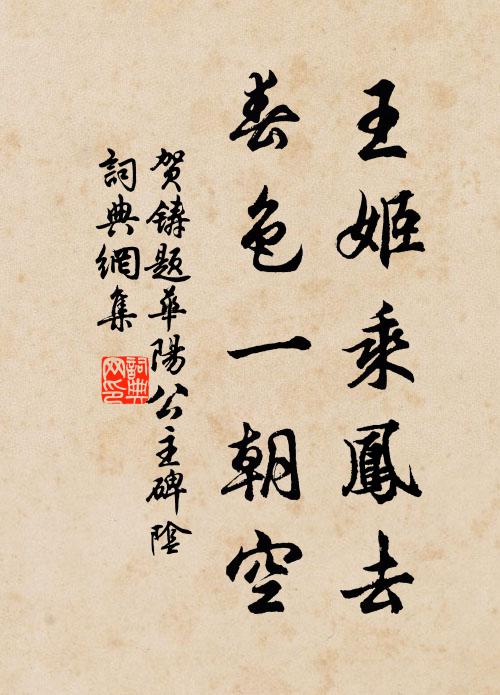 王姬乘鳳去
春色一朝空
贺鑄題華陽公主碑陰
詞典網集
詞典
网印